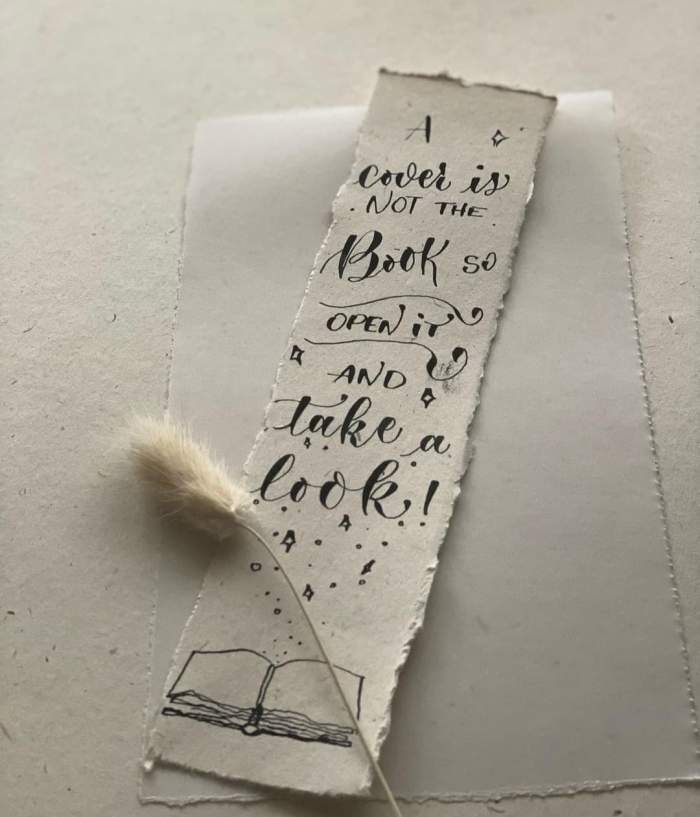 A
cover is
NOT THE
Book so
OPEN iT
AND
take a
look!